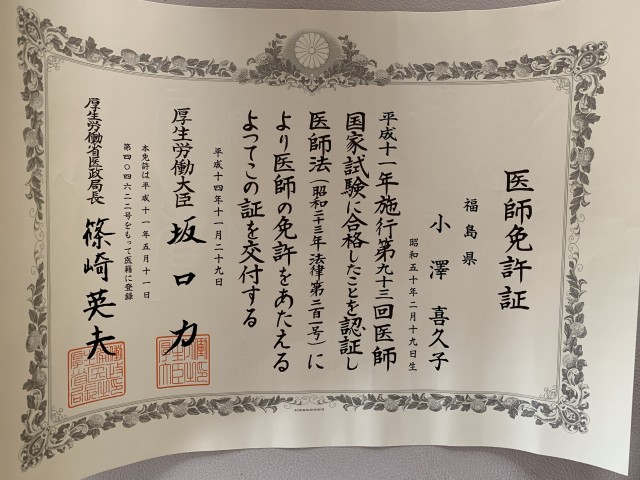 医師免許証
福島県
小澤喜久子
昭和五十年二月十九日生
平成十一年施行第九十三回医師
国家試験に合格したことを認証し
医師法（昭和二十三年法律第二百一号）に
より医師の免許をあたえる
よってこの証を交付する
平成十四年十一月二十九日
厚生労働大臣 坂口力
本免許は平成十一年五月十一日
第四〇四六二二号をもって医籍に登録
厚生労働省医政局長 篠崎英夫